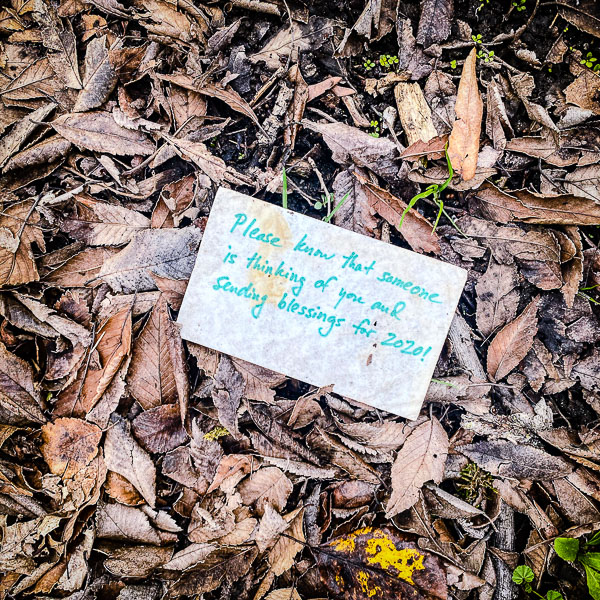 Please know that someone
is thinking of you and
sending blessings for 2020!